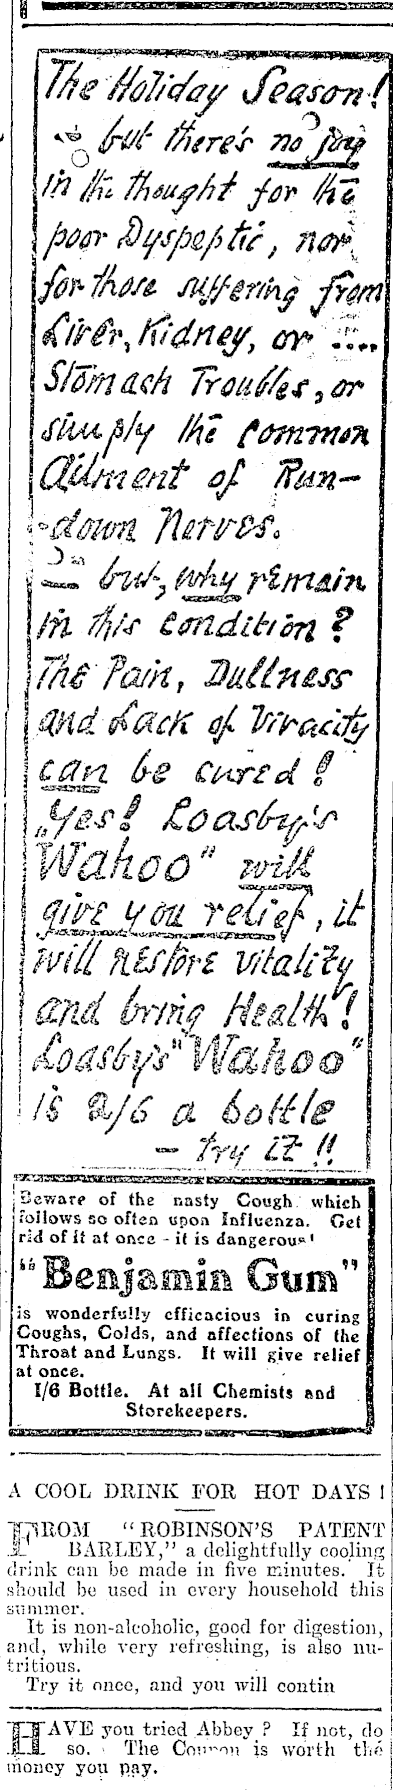 The Holiday Season!
but there's no joy
in the thought for the
poor Dyspeptic, nor
for those suffering from
Liver, Kidney, or ....
Stomach Troubles, or
simply the common
Ailment of Run-
-down Nerves.
— but, why remain
in this condition?
The Pain, Dullness
and Lack of Vivacity
can be cured!
„Yes! Loasby's
Wahoo" will
give you relief, it
will restore vitality
and bring Health!
Loasby's "Wahoo"
is 2/6 a bottle
— try it!!
Beware of the nasty Cough which
follows so often upon Influenza. Get
rid of it at once - it is dangerous!
"Benjamin Gum"
is wonderfully efficacious in curing
Coughs, Colds, and affections of the
Throat and Lungs. It will give relief
at once.
1/6 Bottle. At all Chemists and
Storekeepers.
A COOL DRINK FOR HOT DAYS!
FROM "ROBINSON'S PATENT
BARLEY," a delightfully cooling
drink can be made in five minutes. It
should be used in every household this
summer.
It is non-alcoholic, good for digestion,
and, while very refreshing, is also nu-
tritious.
Try it once, and you will contin
HAVE you tried Abbey? If not, do
so. The Coupon is worth the
money you pay.